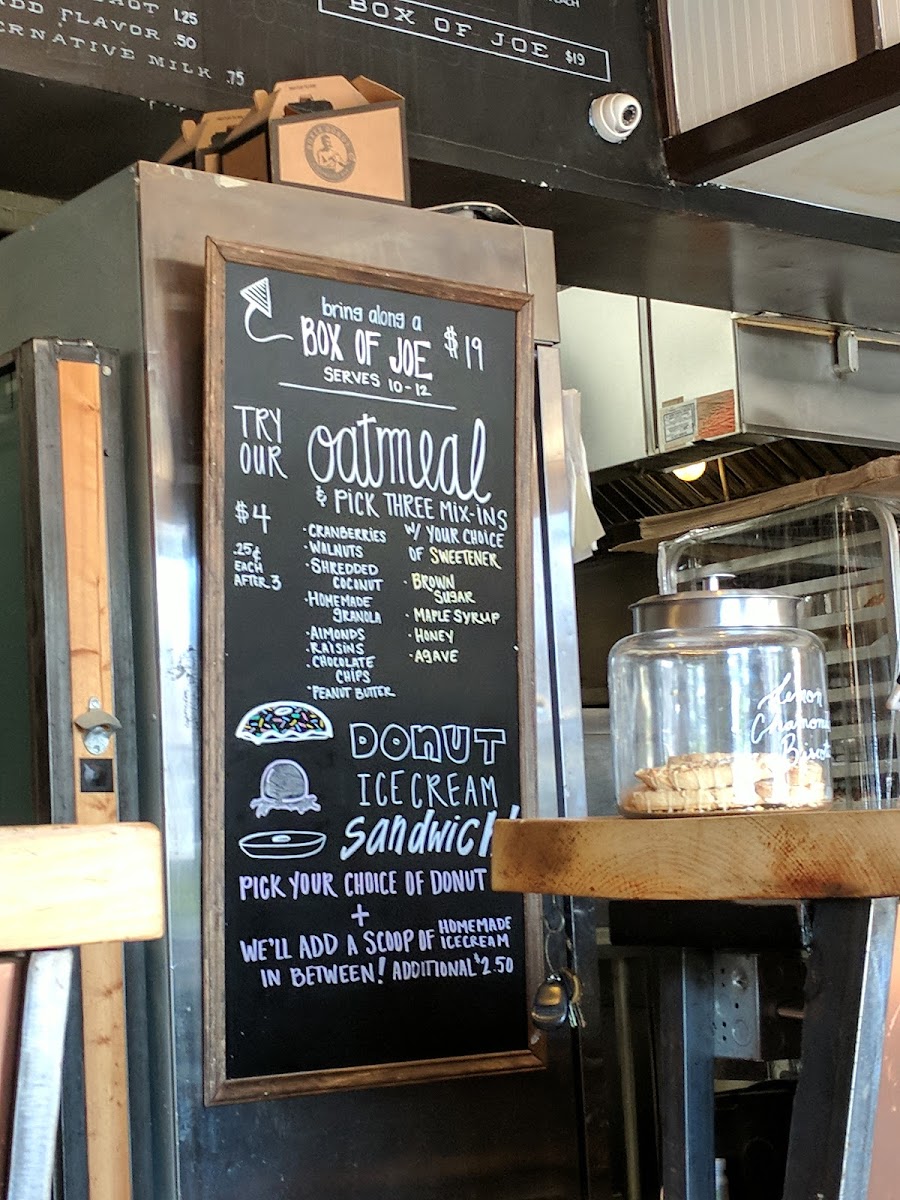 1.25
ADD FLAVOR .50
ALTERNATIVE MILK .75
BOX OF JOE $19
bring along a
BOX OF JOE $19
SERVES 10-12
TRY OUR oatmeal
& PICK THREE MIX-INS
$4
.25¢
EACH
AFTER 3
·CRANBERRIES
·WALNUTS
·SHREDDED
COCONUT
·HOMEMADE
GRANOLA
·ALMONDS
·RAISINS
·CHOCOLATE
CHIPS
·PEANUT BUTTER
W/ YOUR CHOICE
OF SWEETENER
·BROWN
SUGAR
·MAPLE SYRUP
·HONEY
·AGAVE
DONUT
ICE CREAM
Sandwich!
PICK YOUR CHOICE OF DONUT
+
WE'LL ADD A SCOOP OF HOMEMADE ICECREAM
IN BETWEEN! ADDITIONAL $2.50
Lemon